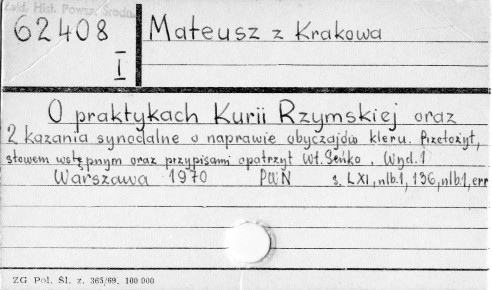 Zakł. Hist. Powsz. Średniow.
62408
I
Mateusz z Krakowa
O praktykach Kurii Rzymskiej oraz
2 kazania synodalne o naprawie obyczajów kleru. Przełożył,
słowem wstępnym oraz przypisami opatrzył Wł. Seńko. Wyd. 1
Warszawa 1970 PWN s. LXI, nlb. 1, 136, nlb. 1, err
ZG Pol. Śl. z. 365/69. 100 000